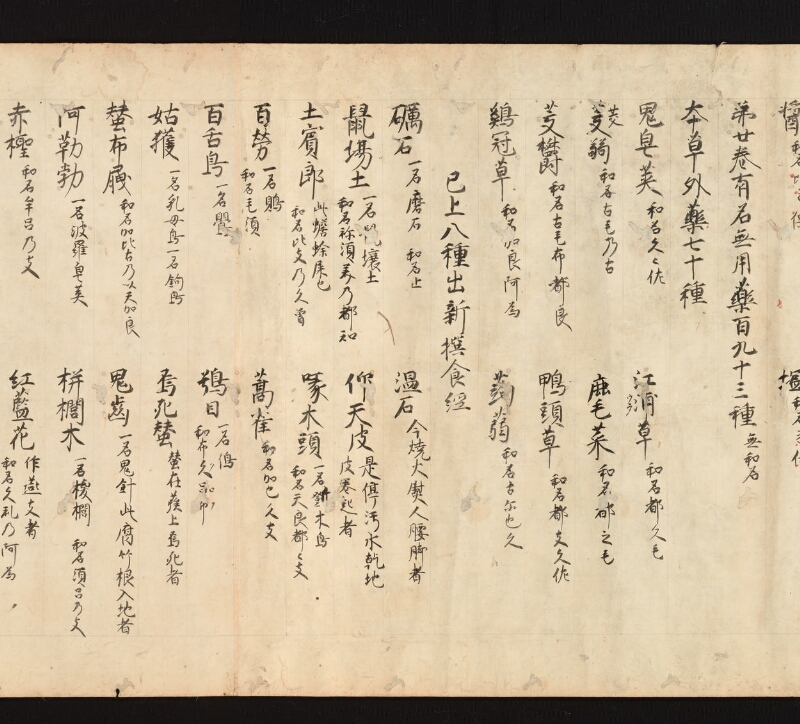 第廿卷有名無用藥百九十三種 無和名
本草外藥七十種
鬼皂莢 和名久〻佐 江浦草 和名都久毛
茭 和名古毛乃古 鹿毛菜 和名 之毛
茭欝 和名古毛布都良 鴨頭草 和名都支久佐
鷄冠草 和名加良阿為 蒟蒻 和名古尓也久
已上八種出新撰食經
礪石 一名磨石 和名止 温石 今燒火熨人腰脚者
鼠場土 一名 壤土 和名祢須美乃都知 仰天皮 是停汚水乾地皮卷起者
土賓郎 此蟾蜍屎也 和名比支乃久曾 啄木頭 一名 木鳥 和名天良都〻支
百勞 一名鵙 和名毛須 蒿雀 和名加也久支
百舌鳥 一名鸎 目 一名
姑獲 一名乳母鳥一名鉤鳥 死蠶 蠶在蔟上烏死者
蠶布 和名加比古乃以天加良 鬼齒 一名鬼針此腐竹根入地者
訶勒勃 一名波羅皂莢 栟櫚木 一名椶櫚 和名須呂乃支
赤檉 和名牟呂乃支 紅藍花 作燕支者 和名久礼乃阿為